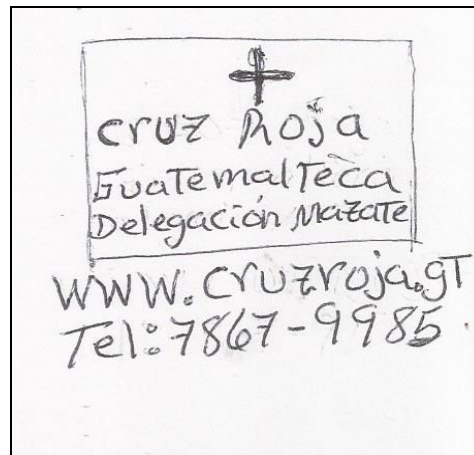 Cruz Roja
Guatemalteca
Delegación Mazate
www.cruzroja.gt
Tel: 7867-9985.